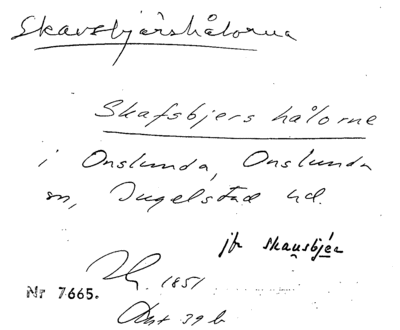 Skavsbjärshålorna
Skafsbjers hålorne
i Onslunda, Onslunda
sn, Ingelstad hd.
jfr skausbjéa
1851
Nr 7665.
Akt 39 b